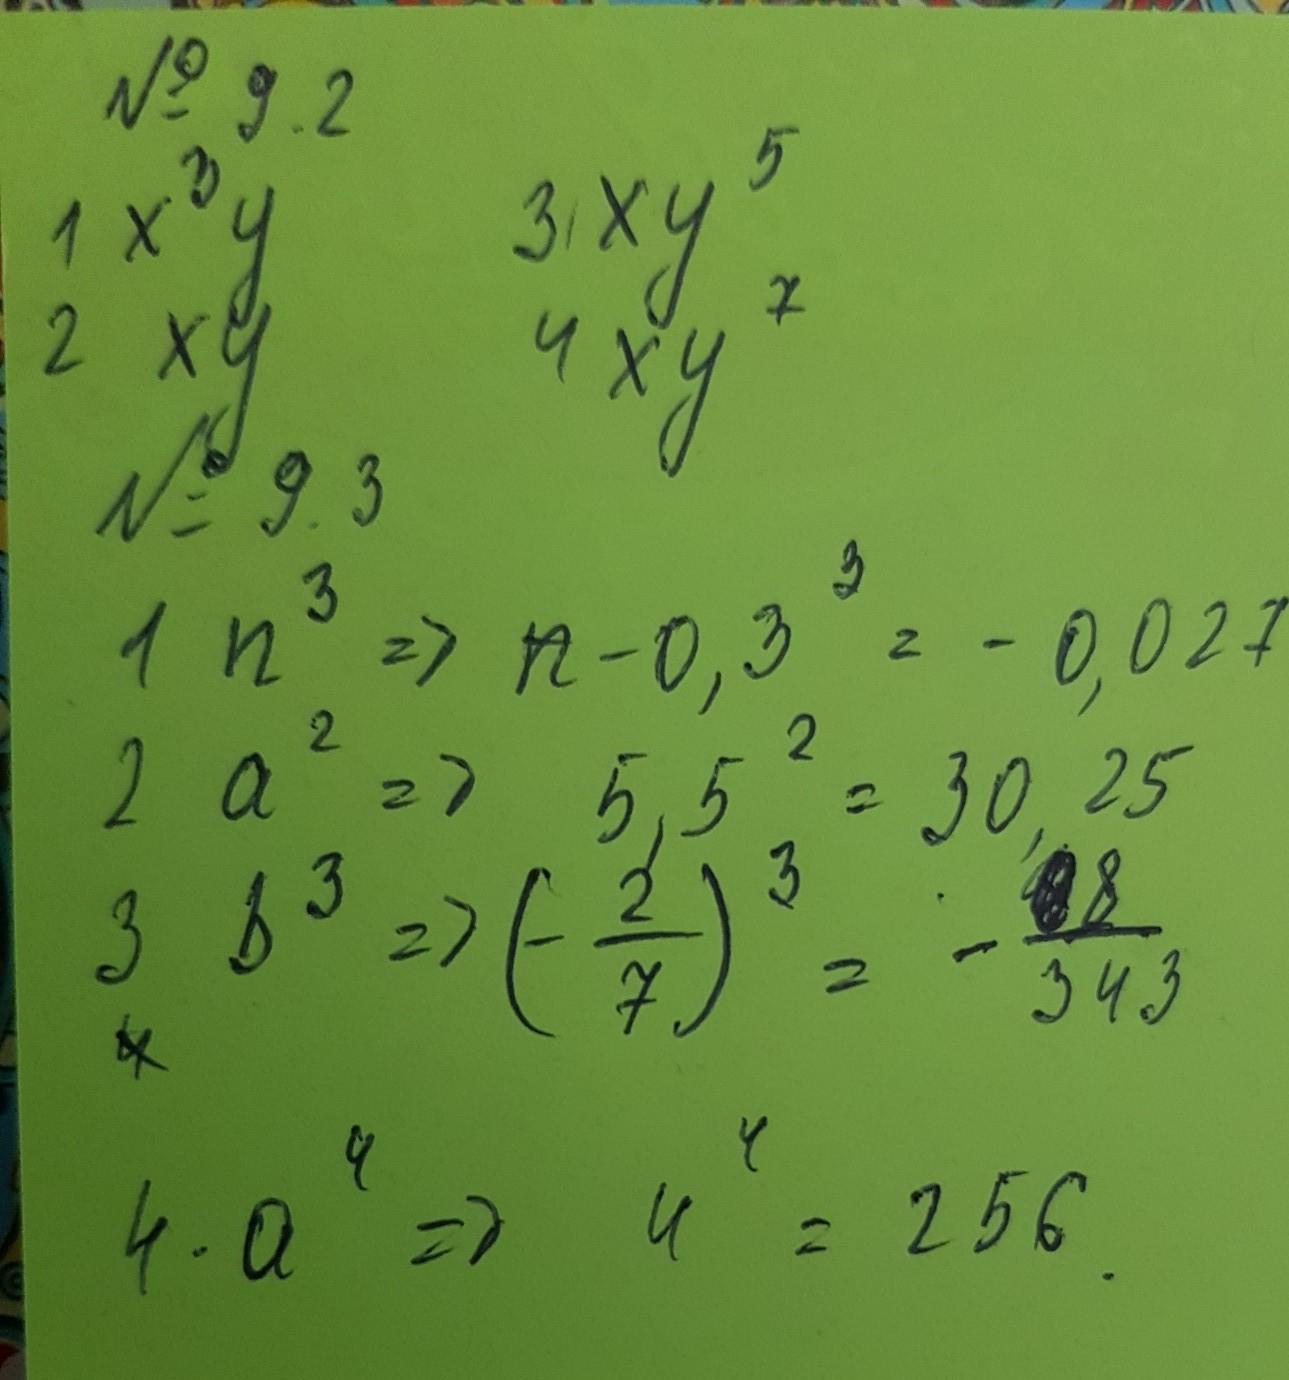 № 9.2
1 x³y 3, xy⁵
2 xy 4 xy⁷
№ 9.3
1 n³ => n -0,3³ = - 0,027
2 a² => 5,5² = 30,25
3 b³ => (-2/7)³ = - 8/343
4. a⁴ => 4⁴ = 256.